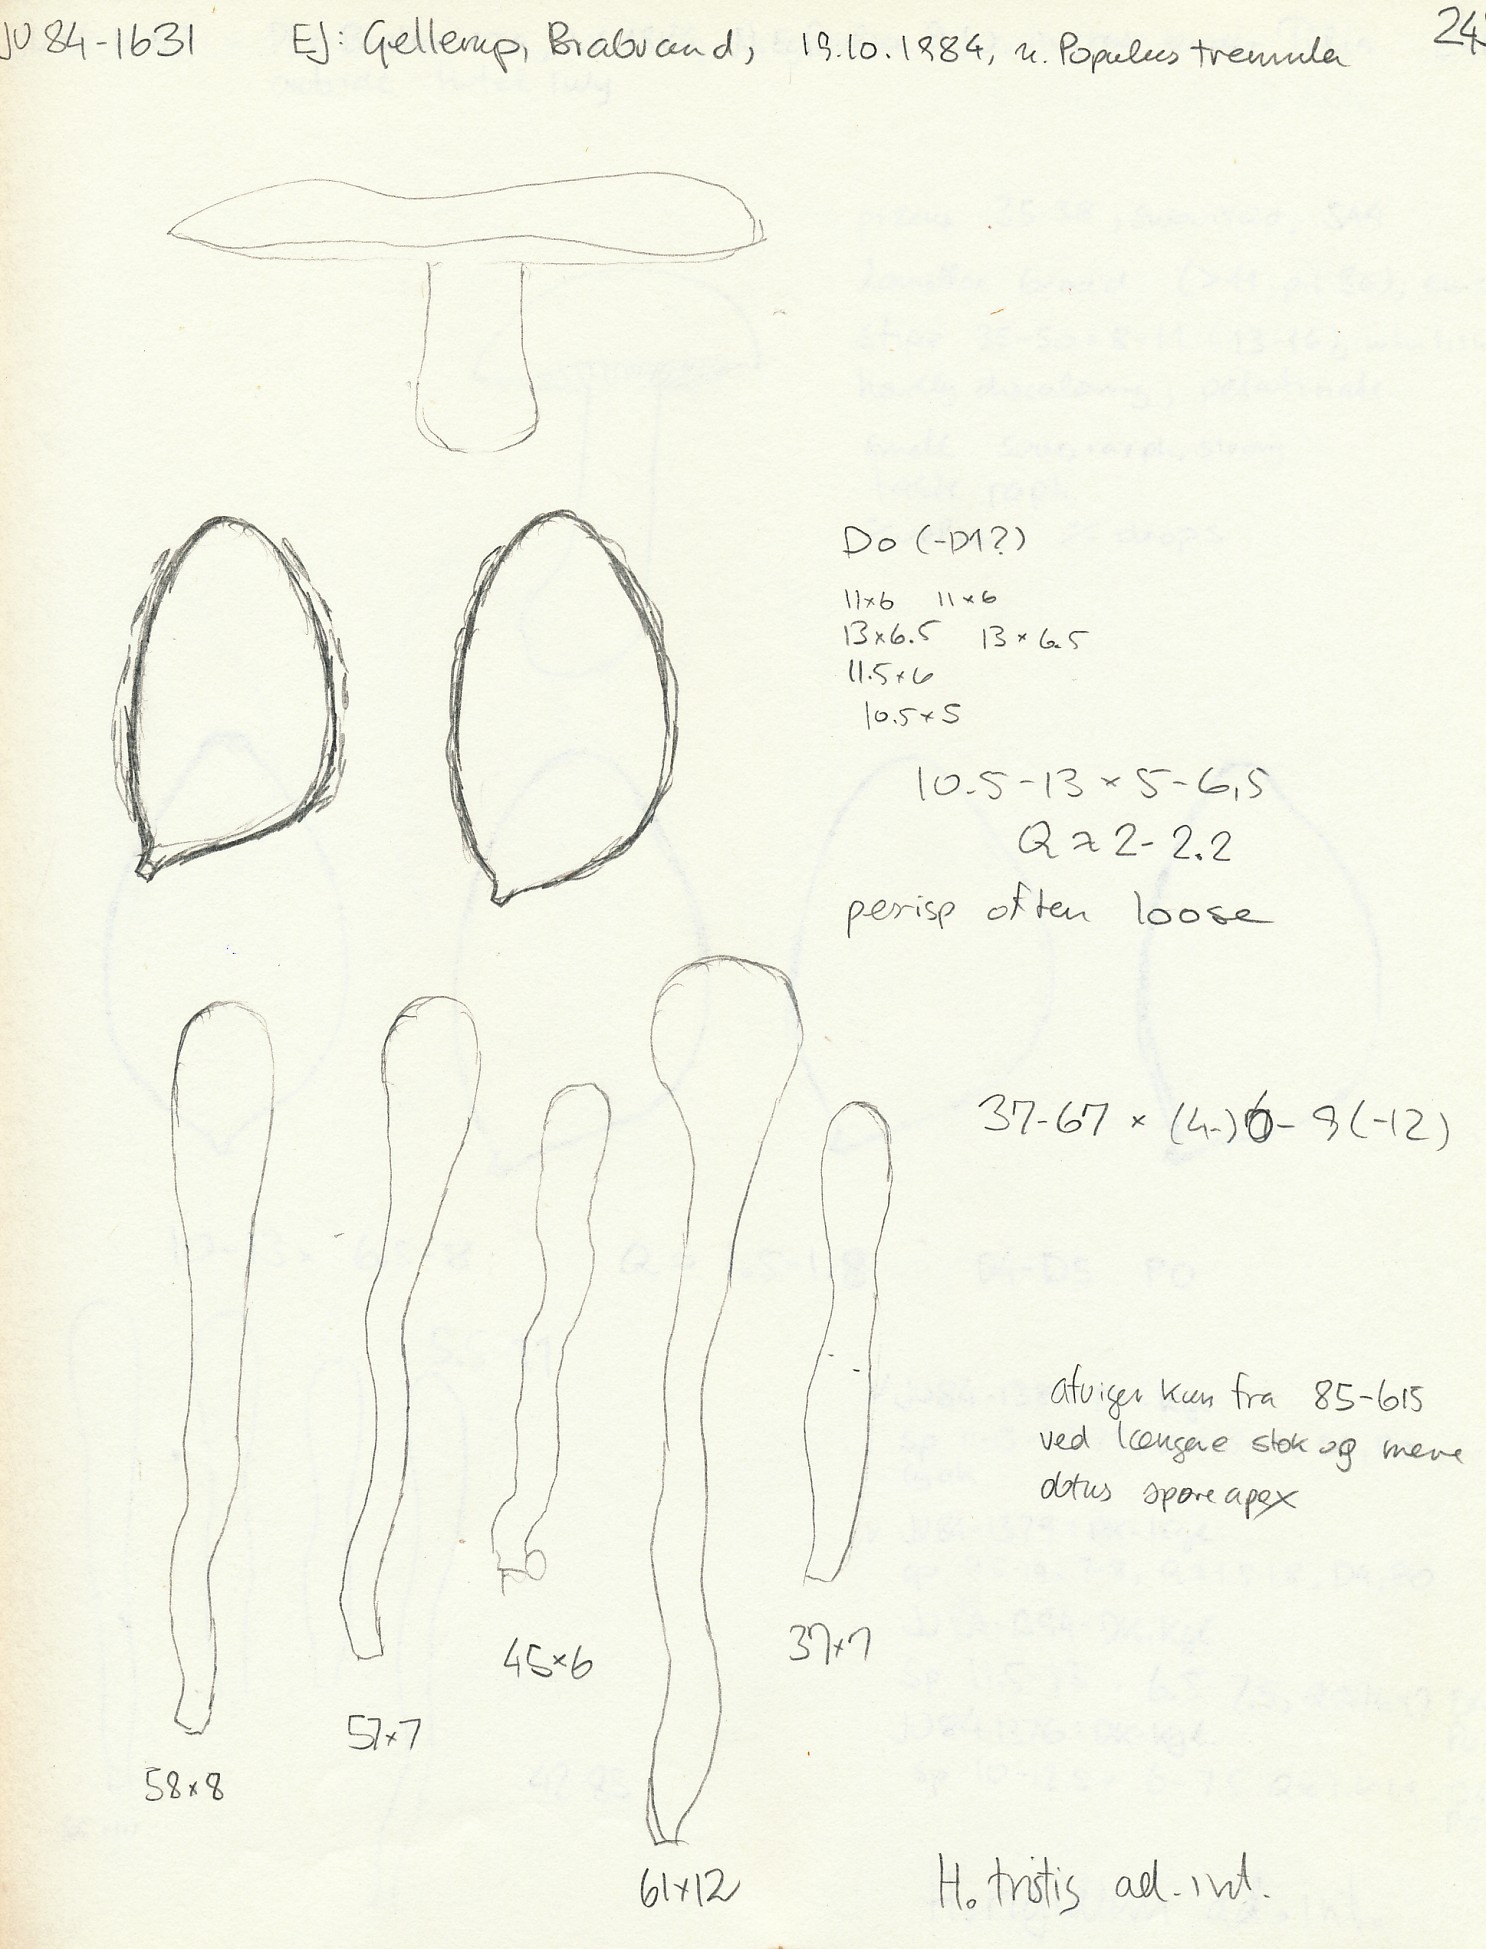 JV 84-1631 EJ: Gellerup, Brabrand, 19.10.1984, u. Populus tremula 24
Do (-D1?)
11×6 11×6
13×6.5 13×6.5
11.5×6
10.5×5
10.5-13 × 5-6,5
Q ≈ 2-2.2
perisp often loose
37-67 × (4-)6-9(-12)
afviger kun fra 85-615
ved længere stok og mere
obtus spore apex
45×6
37×7
57×7
58×8
61×12
H. tristis ad. int.